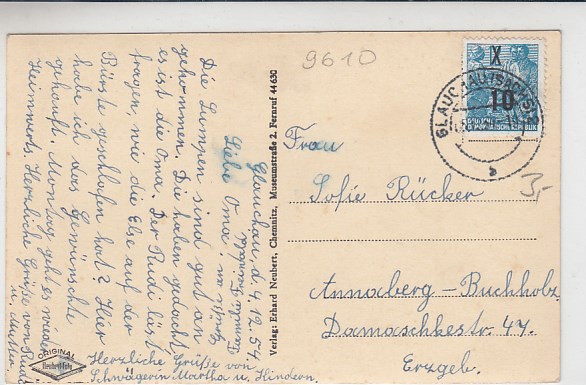 9610
X
10
GLAUCHAU (SACHS)
b
3,-
Glauchau, d. 4. 12. 54.
Liebe Oma!
Die Lumpen sind gut an
gekommen. Die haben gedacht
es ist die Oma. Der Rudi läst
fragen, wie die Else auf der
Bürste geschlafen hat? Hier
habe ich das Gewünschte
gekauft. Montag geht es wieder
Heimwerts. Herzliche Grüße von
u. Mutter.
Herzliche Grüße von
Schwägerin Martha u. Kindern.
Verlag: Erhard Neubert, Chemnitz, Museumstraße 2. Fernruf 44630
Frau
Sofie Rücker
Annaberg-Buchholz
Damaschkestr. 47.
Erzgeb.
ORIGINAL